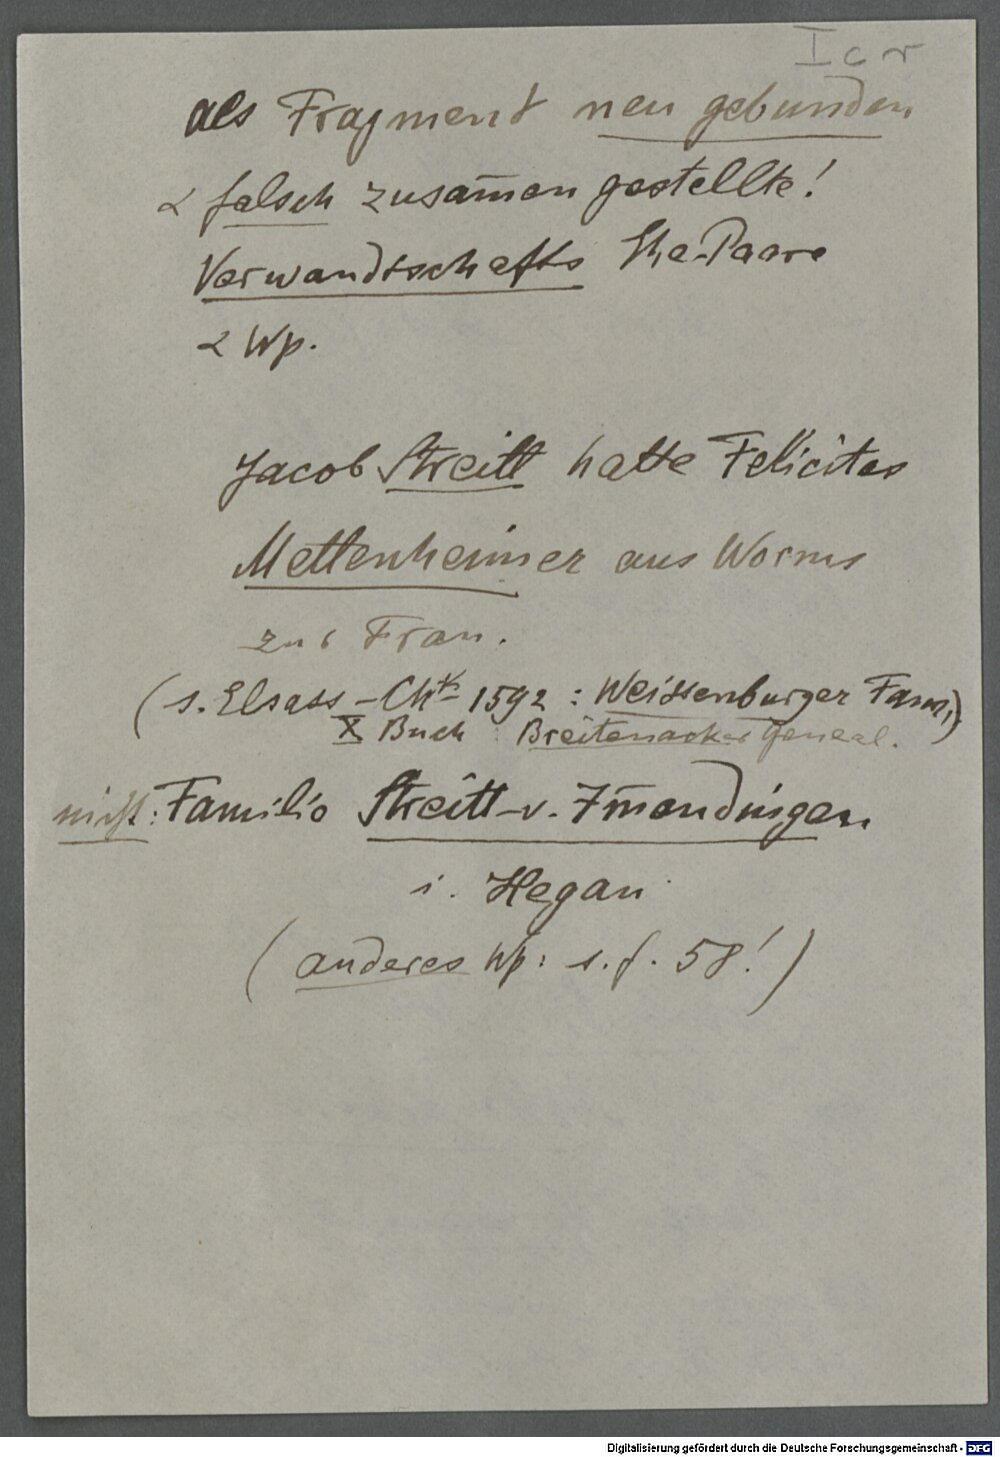 Icr
als Fragment neu gebunden
& falsch zusam̅en gestellte!
Verwandtschafts Ehe-Paare
& Wp.
Jacob Streitt hatte Felicitas
Mettenheimer aus Worms
zur Frau.
(s. Elsass-Chk 1592: Weissenburger Fam.)
X Buch: Breitenacker Geneal.
nicht: Familie Streitt-v. Im̅endingen
i. Hegau
(anderes Wp: s. f. 58!)
Digitalisierung gefördert durch die Deutsche Forschungsgemeinschaft - DFG